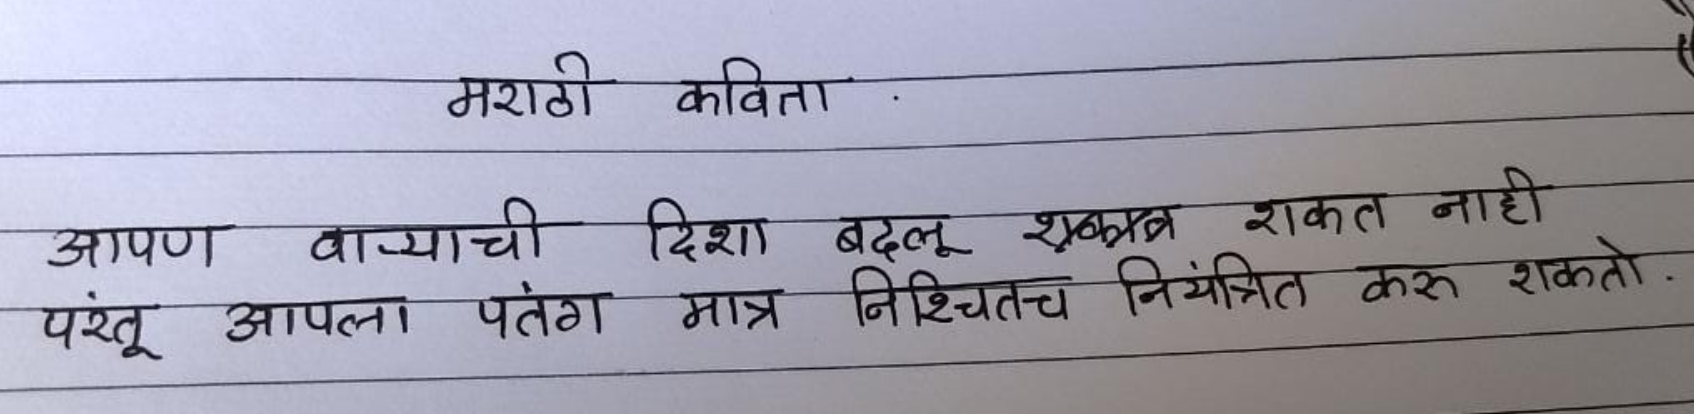 मराठी कविता .
आपण वाऱ्याची दिशा बदलू शकत नाही
परंतू आपला पतंग मात्र निश्चितच नियंत्रित करू शकतो .